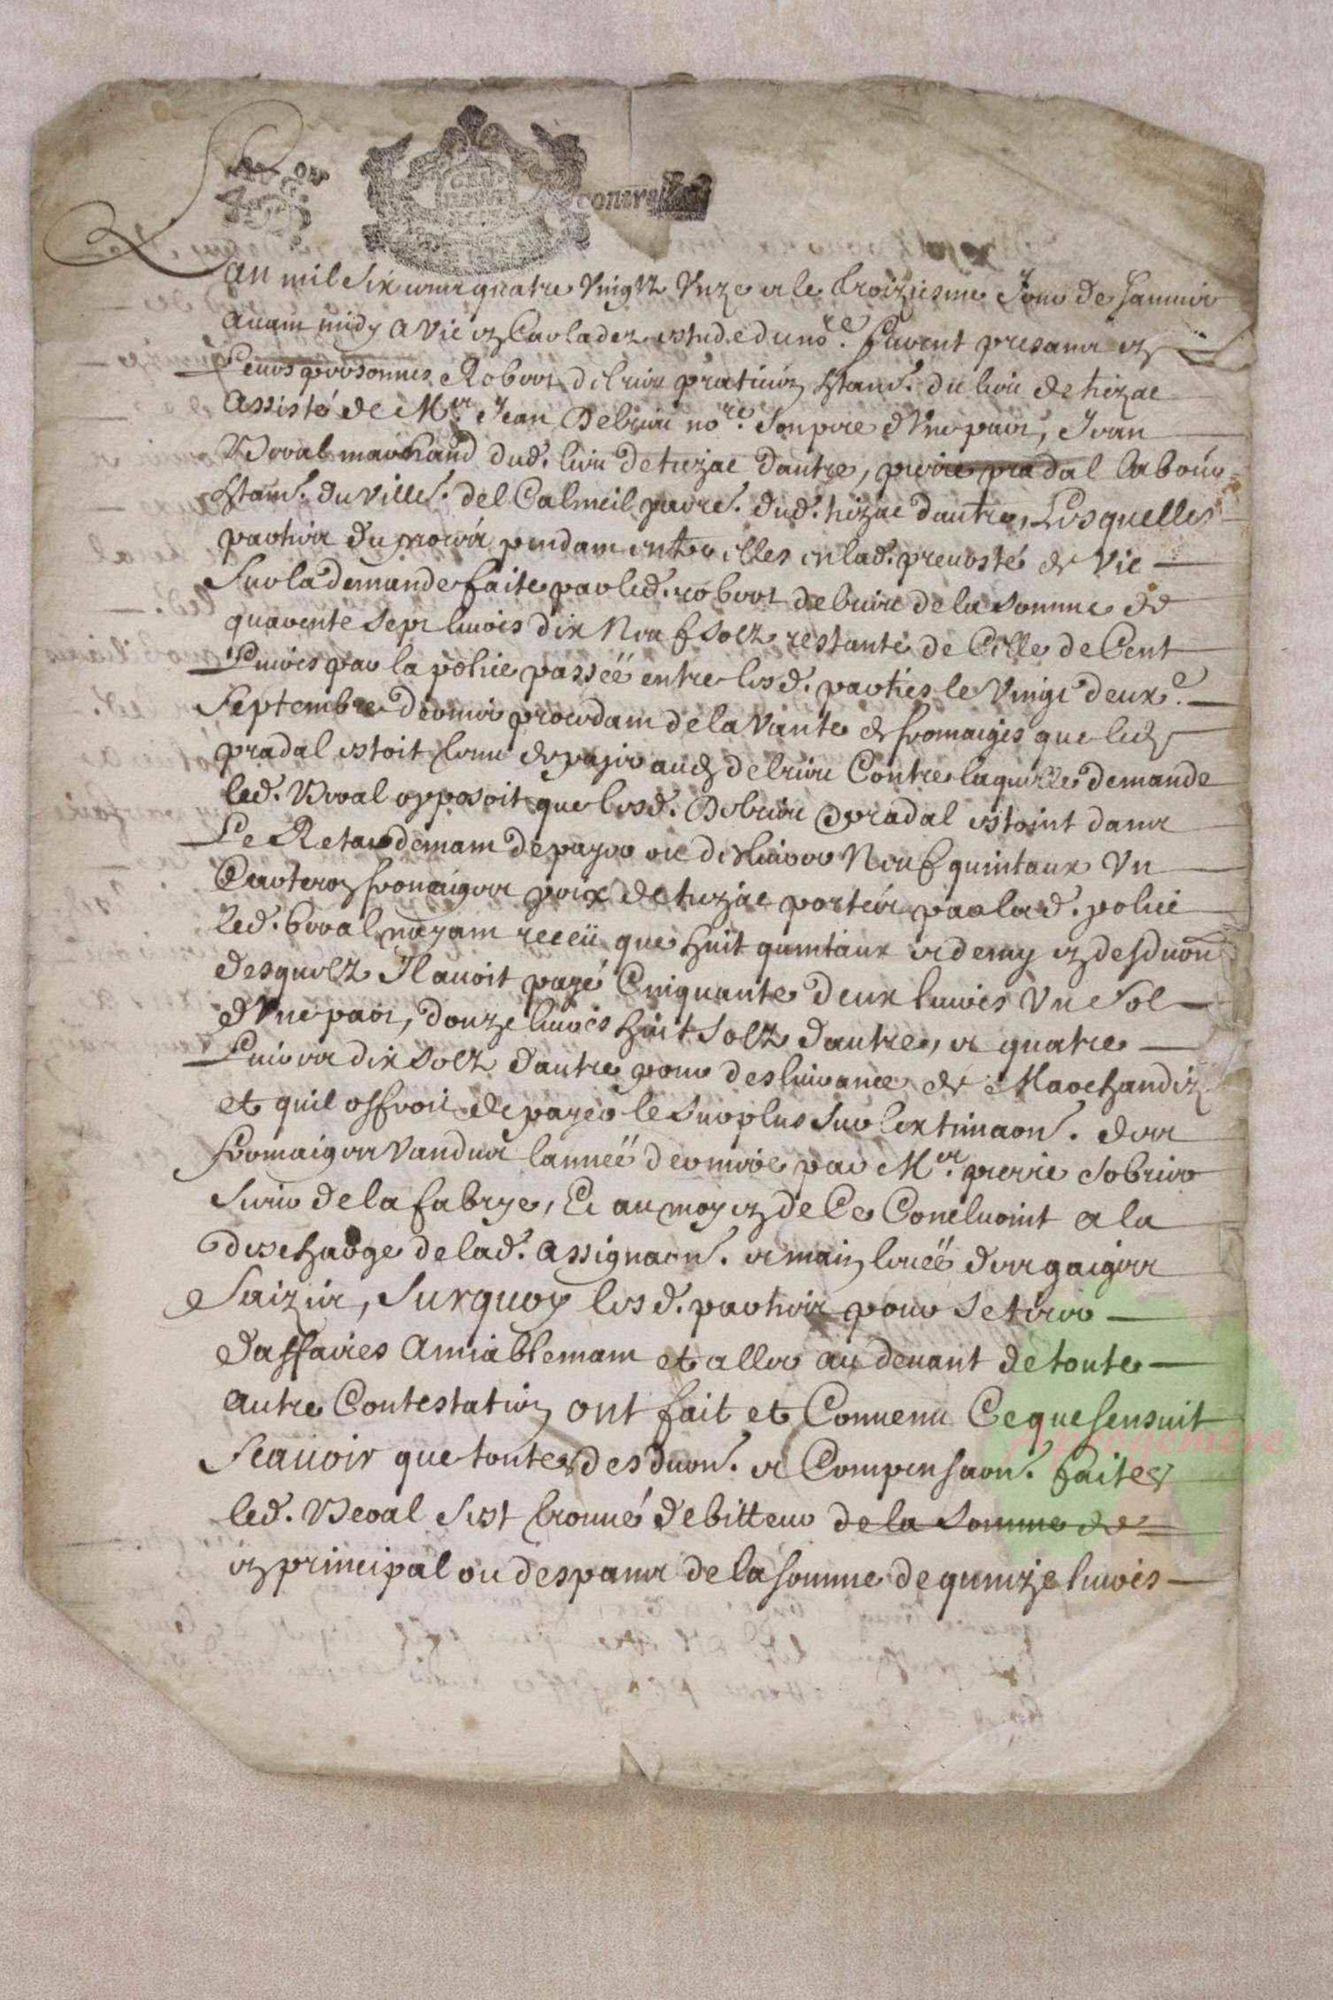 Lan mil six cens quatre vingtz unze et le troiziesme jour de janvier
avant midy a Vic en Carladez estude du no.re furent presans en
leurs personnes Robert debrieu praticien habitan. du lieu de thezac
assisté de M.re Jean Debrieu no.re son pere dune part, Jean
Beral marchand dud. lieu de thezac dautre, pierre pradal labour
habitan. du villa. del Calmeil parre. dud. thezac dautre, Lesquelles
parties du procés pendant entre elles en lad. prevosté de Vic
sur la demande faite par led. robert debrieu de la somme de
quarente sept livres dix neuf solz restante de Celle de Cent
livres par la police passéë entre lesd. parties le vingt deux.e
septembre dernier procedant de la vante de fromaiges que led
pradal estoit tenu de payer aud debrieu Contre laquelle demande
led. Beral opposoit que lesd. Debrieu & pradal estoint dans
le Retardemant de payer ou de livrer neuf quintaux un
Carteron fromaiges poix de thezac portés par lad. police
led. beral nayant receü que huit quintaux et demy en desduon
desquelz Il avoit payé Cinquante deux livres un sol
dune part, douze livres huit solz dautre, et quatre
livres dix solz dautre pour deslivrance de Marchandize
et quil offroit de payer le surplus sur lextimaon. des
fromaiges vandus lannéë derniere par M.re pierre sobrier
sieur de la fabrye, Et au moyen de Ce Concluoint a la
descharge de lad. assignaon. et main levéë des gaiges
saizis, surquoy lesd. parties pour se tirer
daffaires amiablemant et aller au devant de toute
autre Contestation ont fait et Convenu Ce que sensuit
scavoir que toutes desduon. et Compensaon. faites
led. Beral sest trouvé debitteur de la somme de
en principal ou despans de la somme de quinze livres